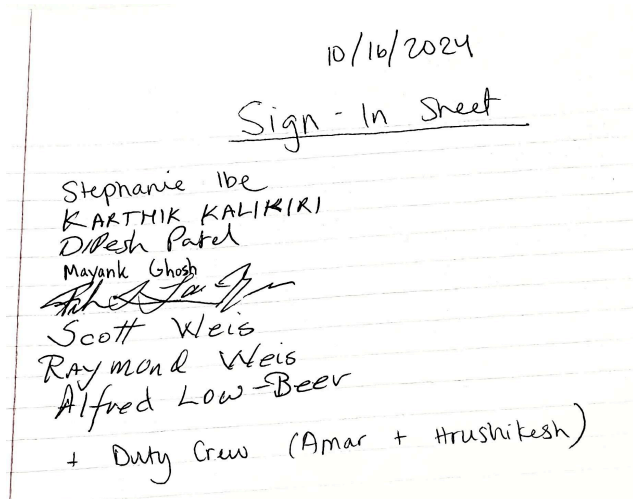 10/16/2024
Sign-In Sheet
Stephanie Ibe
KARTHIK KALIKIRI
Dipesh Patel
Mayank Ghosh
Scott Weis
Raymond Weis
Alfred Low-Beer
+ Duty Crew (Amar + Hrushikesh)